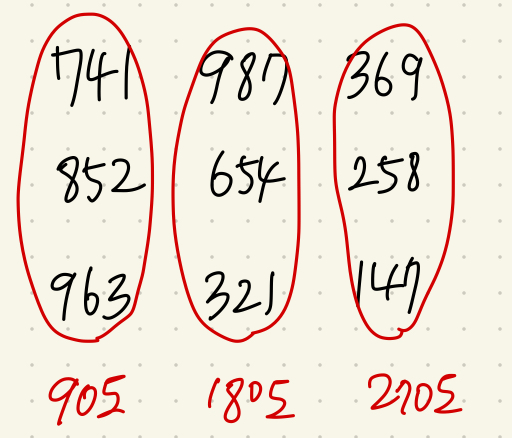 741 987 369
852 654 258
963 321 147
905 1805 2705